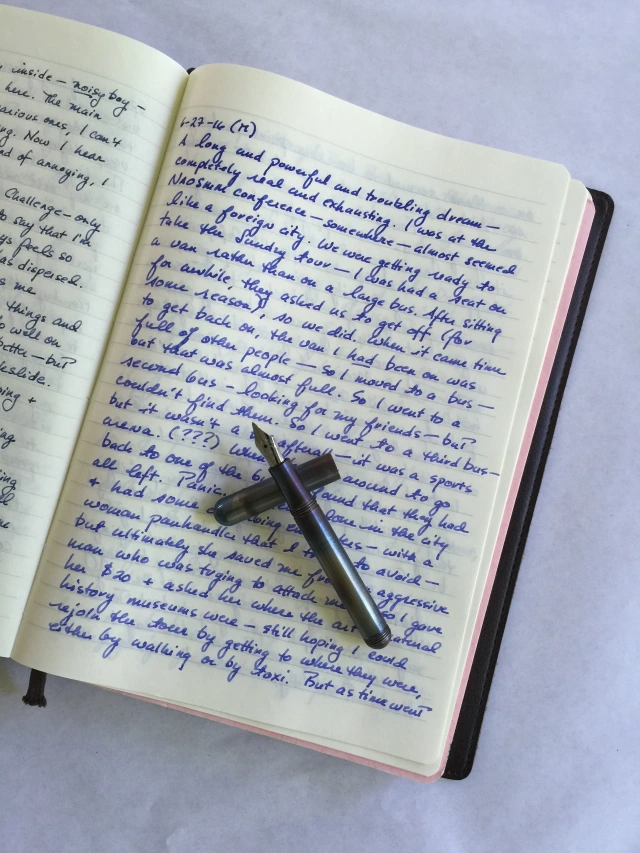 inside — noisy boy —
here. The main
various ones, I can't
ng. Now I hear
nd of annoying, I
Challenge — only
to say that I'm
gs feels so
has dispersed.
s me
things and
well on
— but
kslide.
+
6-27-16 (M)
A long and powerful and troubling dream —
completely real and exhausting. I was at the
conference — somewhere — almost seemed
like a foreign city. We were getting ready to
take the Sunday tour — I was had a seat on
a van rather than on a large bus. After sitting
for awhile, they asked us to get off (for
some reason), so we did. When it came time
to get back on, the van I had been on was
full of other people — so I moved to a bus —
but that was almost full. So I went to a
second bus — looking for my friends — but
couldn't find them. So I went to a third bus —
but it wasn't a — it was a sports
arena. (???) around to go
back to one of the found that they had
all left. Panic. alone in the city
+ had some — with a
woman panhandler that I to avoid —
but ultimately she saved me aggressive
man who was trying to attack me so I gave
her $20 + asked her where the art natural
history museums were — still hoping I could
rejoin the tour by getting to where they were,
either by walking or by taxi. But as time went